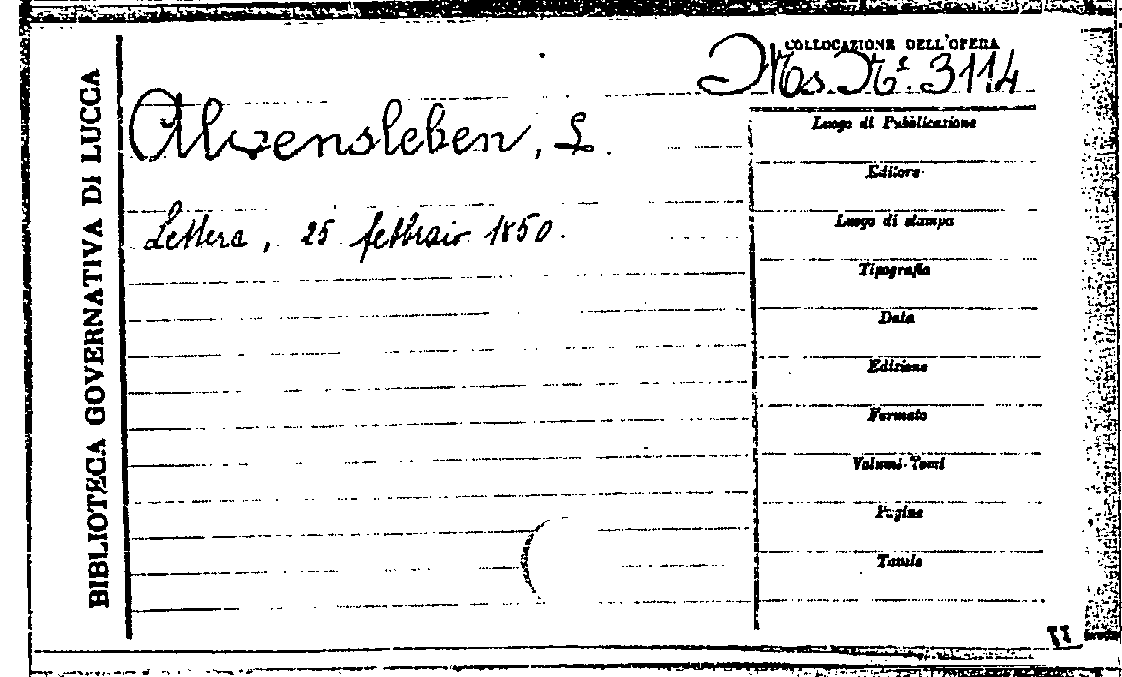 BIBLIOTECA GOVERNATIVA DI LUCCA
COLLOCAZIONE DELL'OPERA
Ms. N.º 3114
Alvensleben, L.
Lettera, 25 febbraio 1850.
Luogo di Pubblicazione
Editore
Luogo di stampa
Tipografia
Data
Edizione
Formato
Volumi-Tomi
Pagine
Tavole